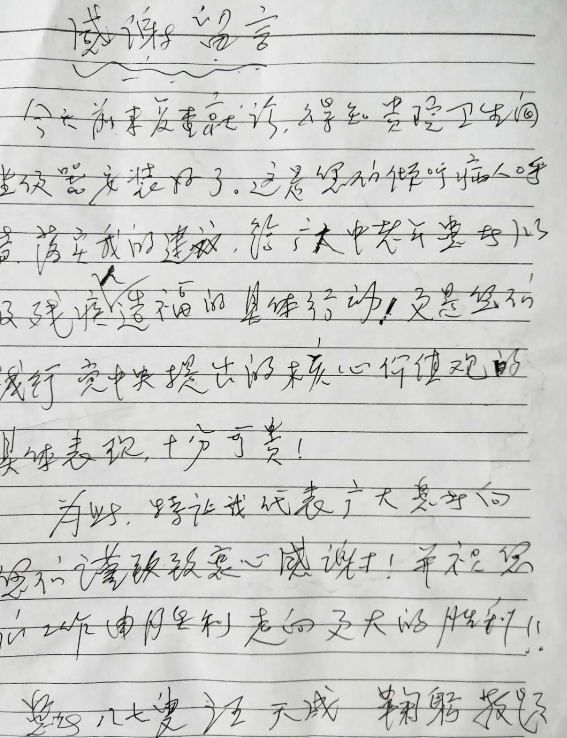 感谢留言
今天前来复查就诊,得知贵院卫生间
坐便器安装好了。这是您们倾听病人呼
声,落实我的建议,给广大中老年患者以
及残疾人造福的具体行动!更是您们
践行党中央提出的核心价值观的
具体表现,十分可贵!
为此,特让我代表广大患者向
您们谨致衷心感谢!并祝您
们工作由胜利走向更大的胜利!!
患者八七叟汪天成 鞠躬敬